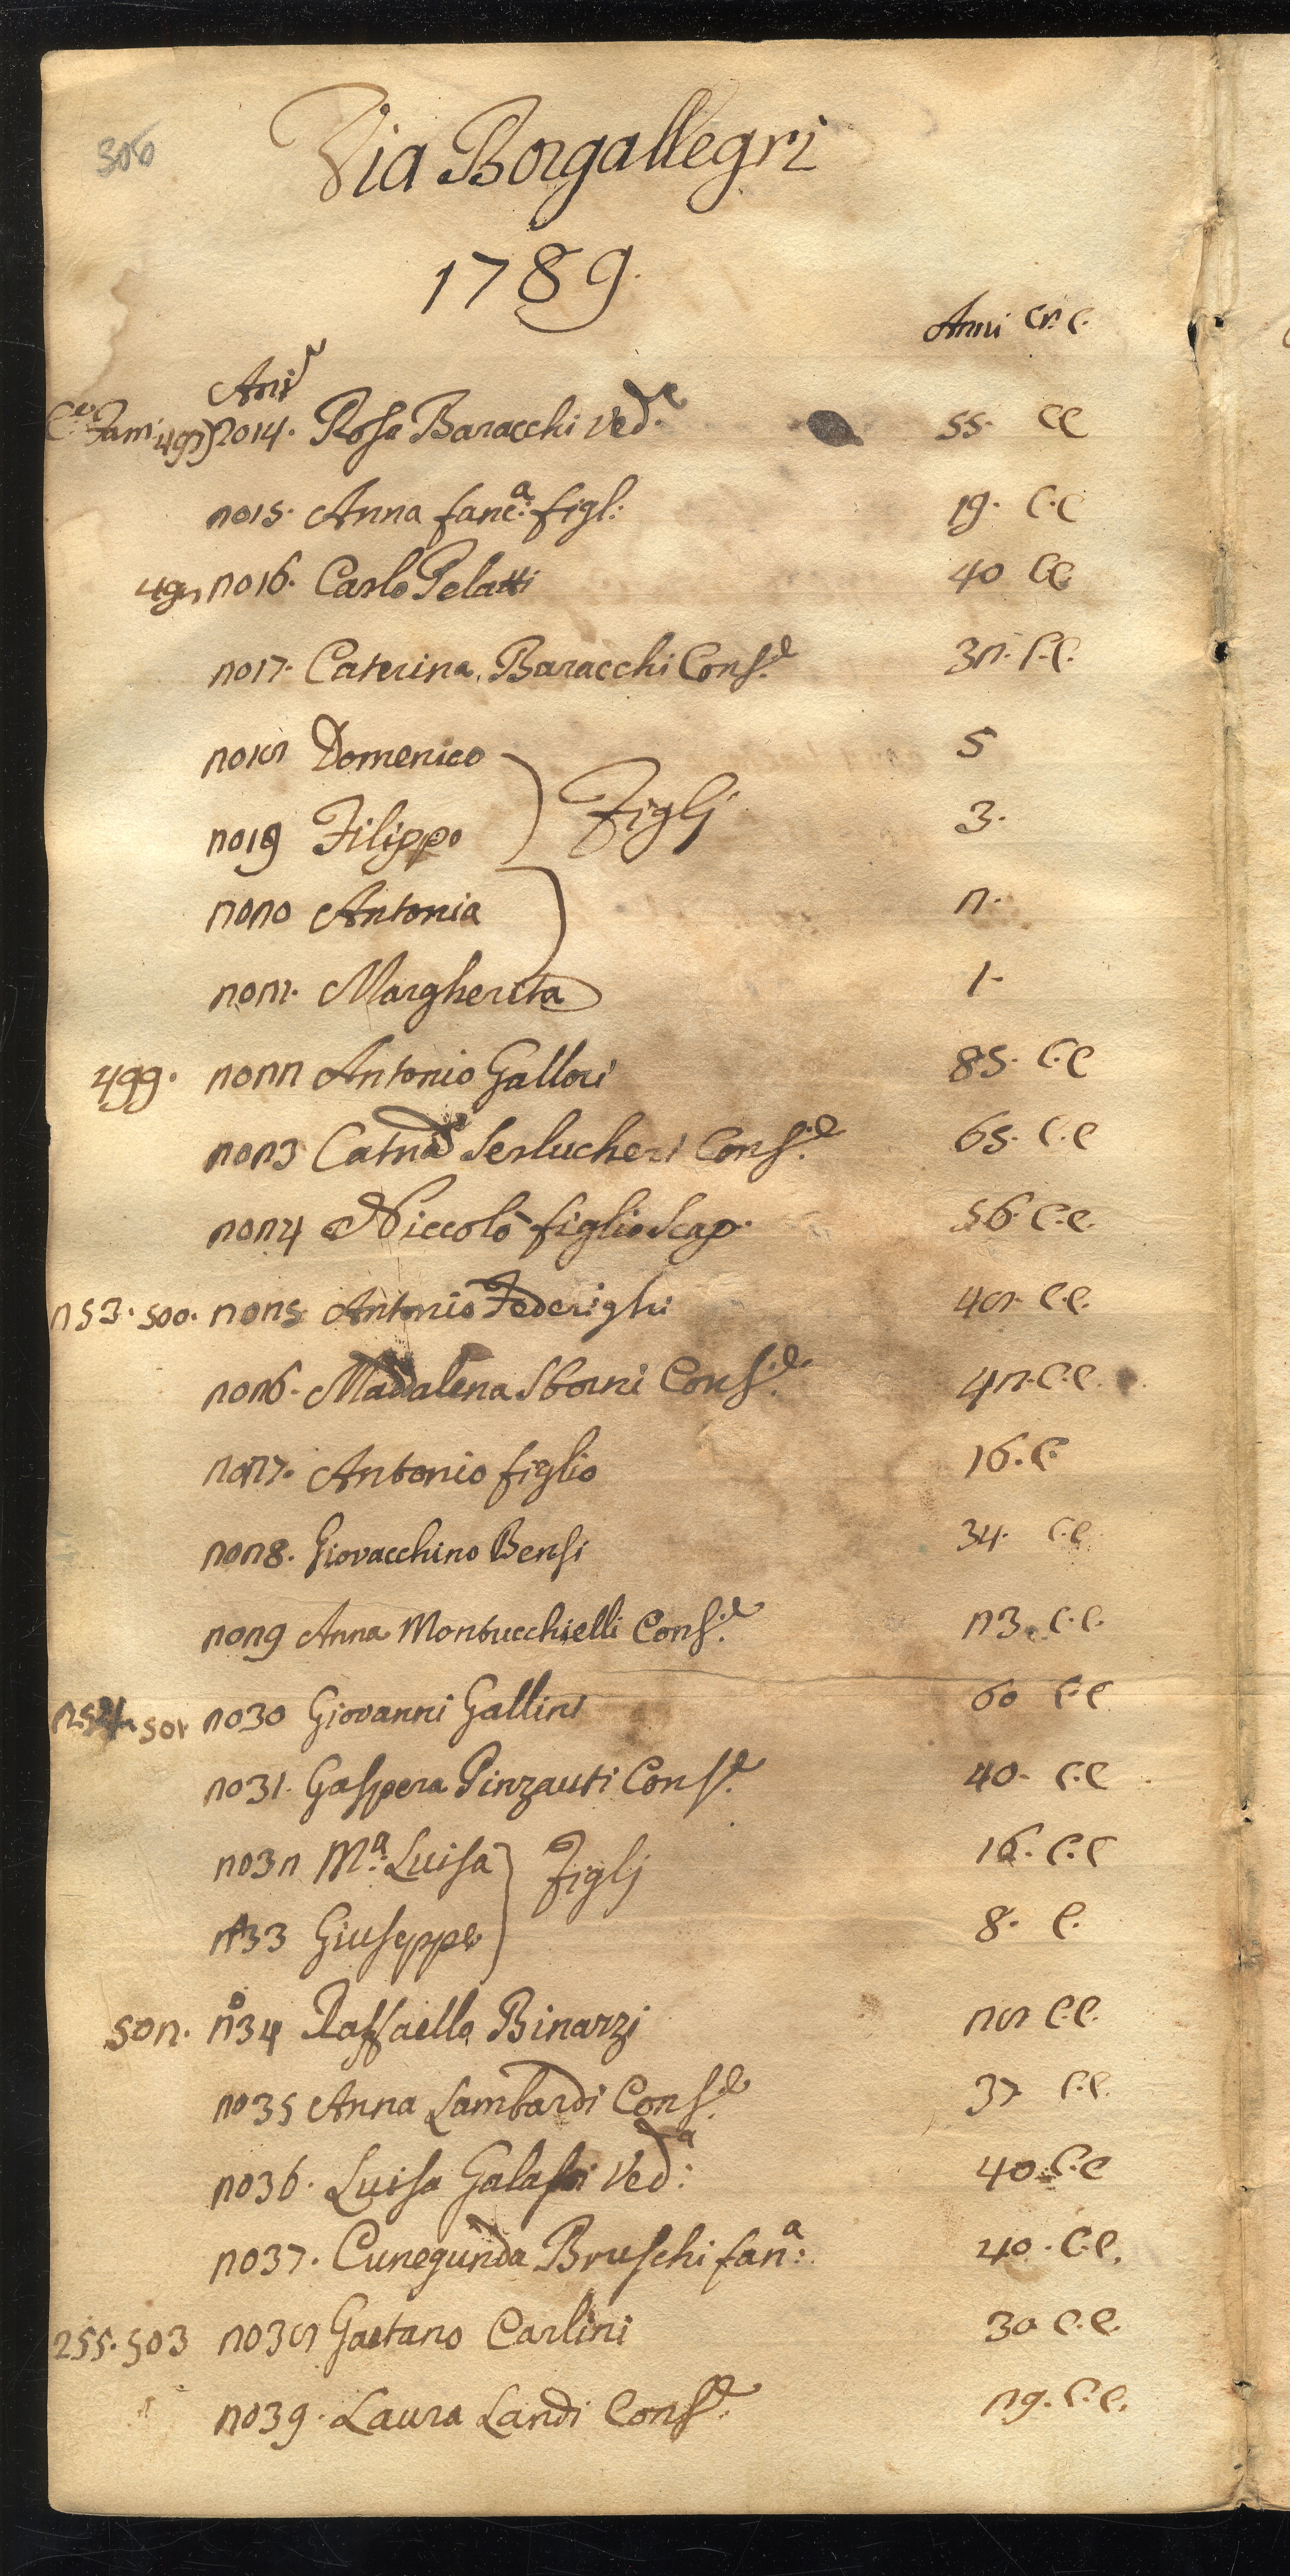 306
Via Borgallegri
1789.
Anni Cr. C.
Ani.e
Fam: 497) 2014. Rosa Baracchi Ved.a 55. CC
2015. Anna fanc.a: figl: 19. C.C
498 2016. Carlo Pelatti 40 CC
2017. Caterina Baracchi Cons.e 32. C.C.
2018 Domenico 5
2019 Filippo } Figlj 3.
2020 Antonia 2.
2021. Margherita 1.
499. 2022 Antonio Gallori 85. C.C
2023 Catna Serlucheri Cons.e 65. C.C
2024 Niccolò figlio Scap. 56. C.C.
253. 500. 2025 Antonio Federighi 48. C.C.
2026. Madalena Sborni Cons.e 42. C.C.
2027. Antonio figlio 16. C.
2028. Giovacchino Bensi 34. C.C
2029 Anna Montucchielli Cons.e 23. C.C.
254. 501 2030 Giovanni Gallini 60 C.C
2031. Gaspera Pinzauti Cons.e 40. C.C
2032 M.a: Luisa } Figlj 16. C.C
2033 Giuseppe 8. C.
502. 2034 Raffaello Binazzi 28 C.C.
2035 Anna Lambardi Cons.e 37 C.C.
2036. Luisa Galassi Ved.a: 40. C.C
2037. Cunegunda Bruschi fan.a: 40. C.C.
255. 503 2038 Gaetano Carlini 30 C.C.
2039. Laura Landi Cons.e 29. C.C.